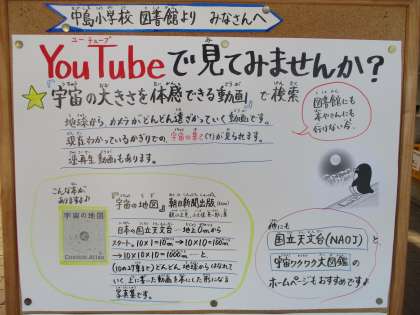 中島小学校 図書館より みなさんへ
ユーチューブ
YouTubeで見てみませんか?
宇宙の大きさを体感できる動画 で検索
地球から カメラがどんどん遠ざかっていく動画です。
現在わかっているかぎりでの 宇宙の果て(?)が見られます。
逆再生動画もあります。
図書館にも
本やさんにも
行けない今。
こんな本が
ありますよ
宇宙の地図
Cosmic Atlas
『宇宙の地図』 朝日新聞出版
日本の国立天文台 地上0mから
スタート。10×1=10m → 10×10=100m
→ 10×10×10=1000m と
どんどん 地球からはなれて
いく 上に書いた動画を本にした形になる
写真集です。
他にも
国立天文台(NAOJ) と
宇宙ワクワク大図鑑の
ホームページもおすすめですよ